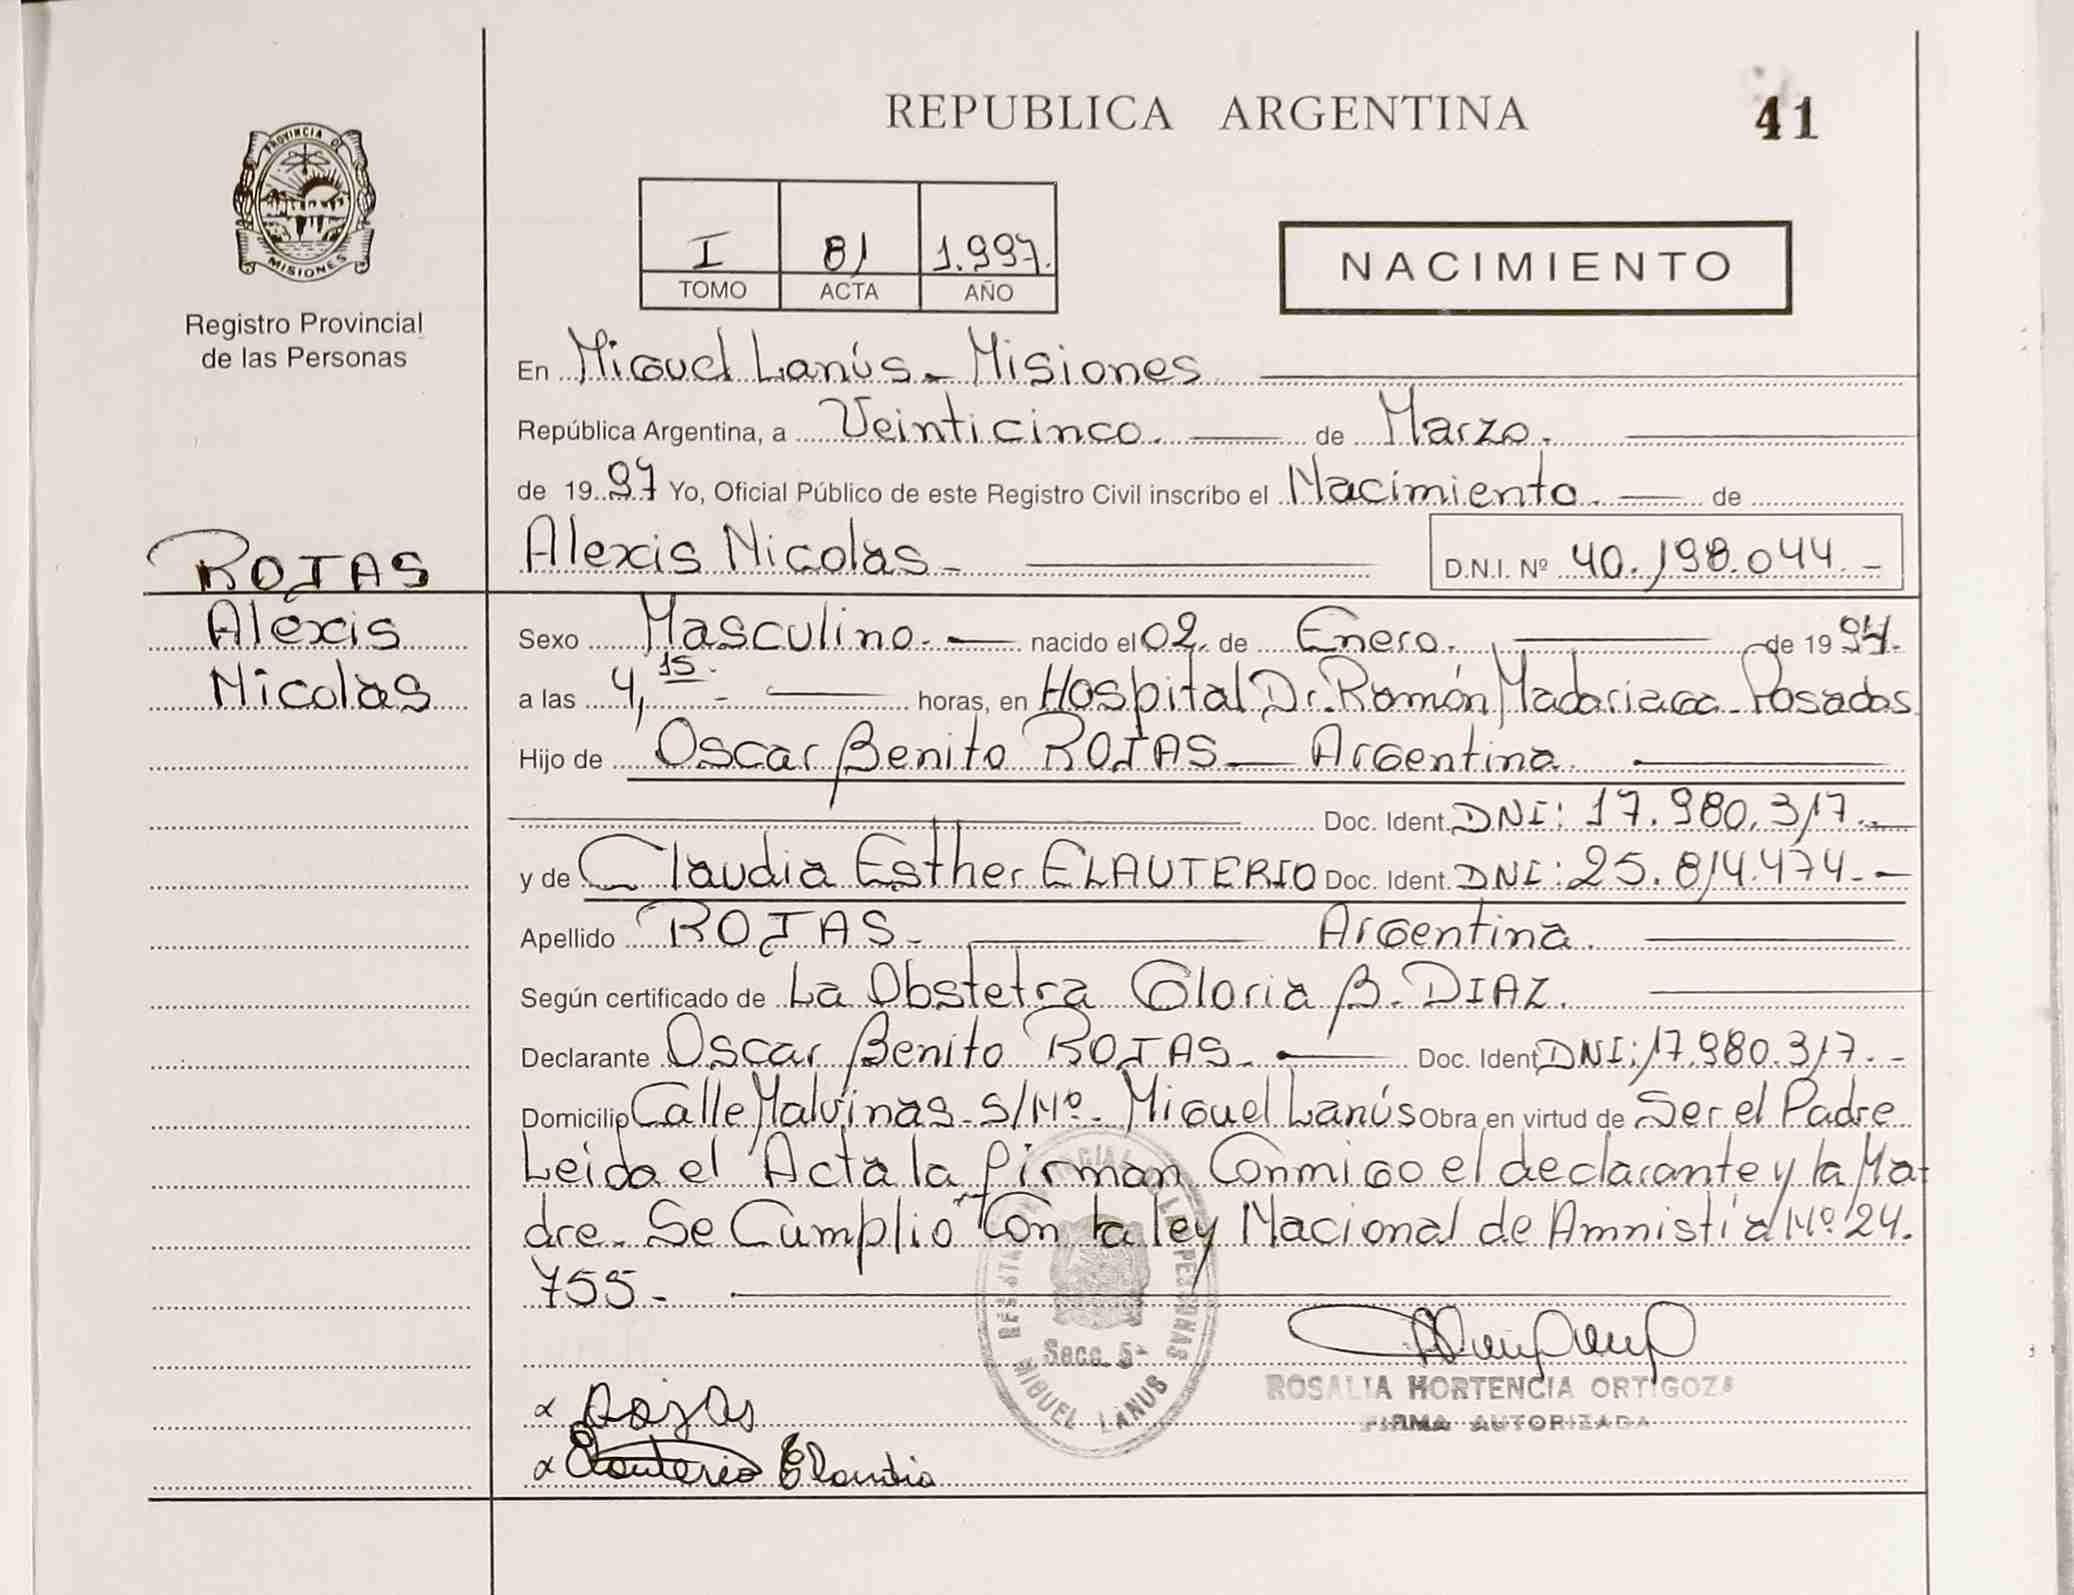 REPUBLICA ARGENTINA
41
PROVINCIA DE
MISIONES
Registro Provincial
de las Personas
I 81 1.997.
TOMO ACTA AÑO
NACIMIENTO
En Miguel Lanús - Misiones
República Argentina, a Veinticinco. de Marzo.
de 1997 Yo, Oficial Público de este Registro Civil inscribo el Nacimiento. de
Alexis Nicolas - D.N.I. Nº 40.198.044.-
ROJAS
Alexis
Nicolas
Sexo Masculino.- nacido el 02. de Enero. de 1994.
a las 4,15.- horas, en Hospital Dr. Ramón Madariaga - Posadas
Hijo de Oscar Benito ROJAS - Argentina.
Doc. Ident. DNI: 17.980.317.-
y de Claudia Esther ELAUTERIO Doc. Ident. DNI: 25.814.474.-
Apellido ROJAS - Argentina.
Según certificado de La Obstetra Gloria B. DIAZ.
Declarante Oscar Benito ROJAS.- Doc. Ident DNI: 17.980.317.-
Domicilio Calle Malvinas - S/Nº - Miguel Lanús Obra en virtud de Ser el Padre
Leida el Acta la firman Conmigo el declarante y la Ma-
dre - Se Cumplio Con la ley Nacional de Amnistía Nº 24.
755 -
Secc. 5
MIGUEL LANUS
ROSALIA HORTENCIA ORTIGOZA
FIRMA AUTORIZADA
x Rojas
x Elauterio Claudia